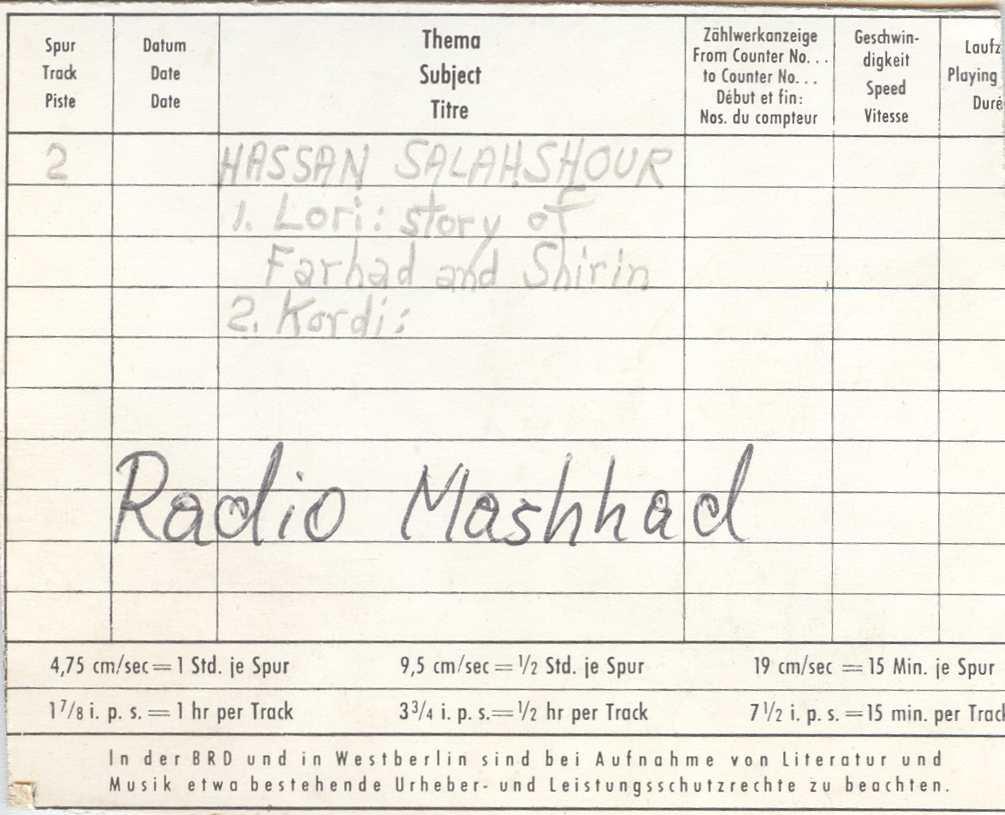 Spur Track Piste
Datum Date Date
Thema Subject Titre
Zählwerkanzeige From Counter No... to Counter No... Début et fin: Nos. du compteur
Geschwin-digkeit Speed Vitesse
Laufz Playing Duré
2 HASSAN SALAHSHOUR
1. Lori: story of
Farhad and Shirin
2. Kordi:
Radio Mashhad
4,75 cm/sec = 1 Std. je Spur 9,5 cm/sec = 1/2 Std. je Spur 19 cm/sec = 15 Min. je Spur
1 7/8 i. p. s. = 1 hr per Track 3 3/4 i. p. s. = 1/2 hr per Track 7 1/2 i. p. s. = 15 min. per Track
In der BRD und in Westberlin sind bei Aufnahme von Literatur und
Musik etwa bestehende Urheber- und Leistungsschutzrechte zu beachten.